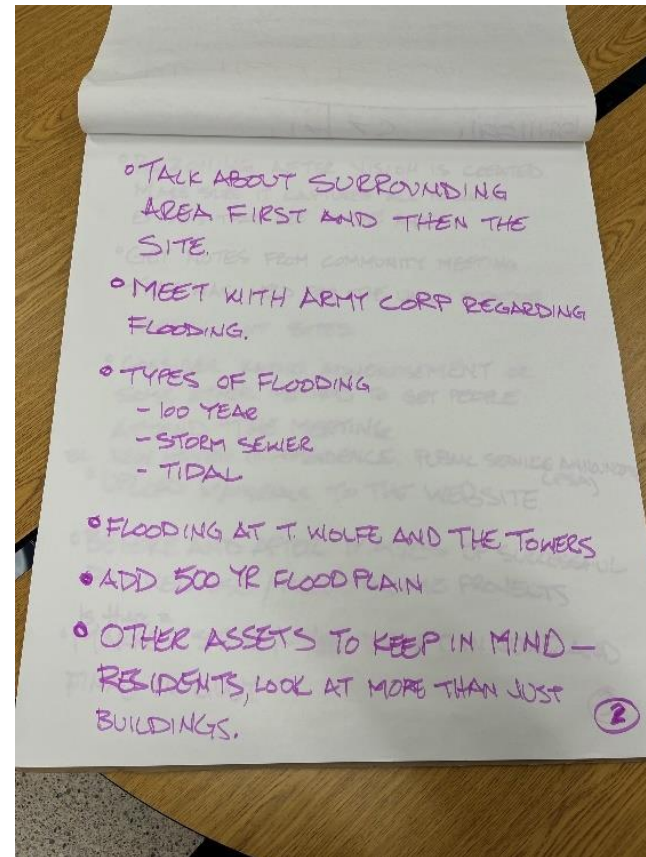 • TALK ABOUT SURROUNDING
AREA FIRST AND THEN THE
SITE.
• MEET WITH ARMY CORP REGARDING
FLOODING.
• TYPES OF FLOODING
- 100 YEAR
- STORM SEWER
- TIDAL
• FLOODING AT T. WOLFE AND THE TOWERS
• ADD 500 YR FLOOD PLAIN
• OTHER ASSETS TO KEEP IN MIND —
RESIDENTS, LOOK AT MORE THAN JUST
BUILDINGS.
2